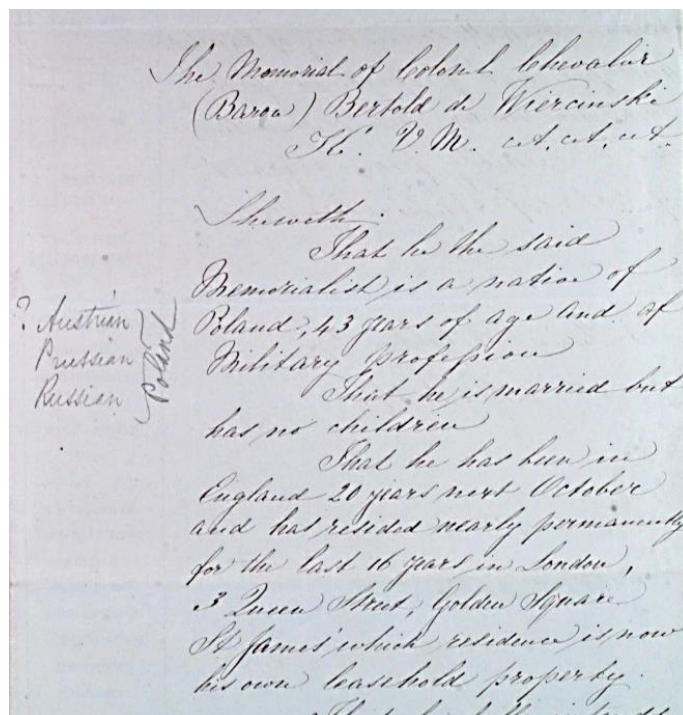 The Memorial of Colonel Chevalier
(Baron) Bertold de Wiercinski
K. V. M. &. &. &.
Sheweth.
That he the said
Memorialist is a native of
Poland, 43 years of age and of
Military profession
That he is married but
has no children
That he has been in
England 20 years next October
and has resided nearly permanently
for the last 16 years in London,
3 Queen Street, Golden Square
St James' which residence is now
his own leasehold property.
? Austrian
Prussian
Russian
Poland